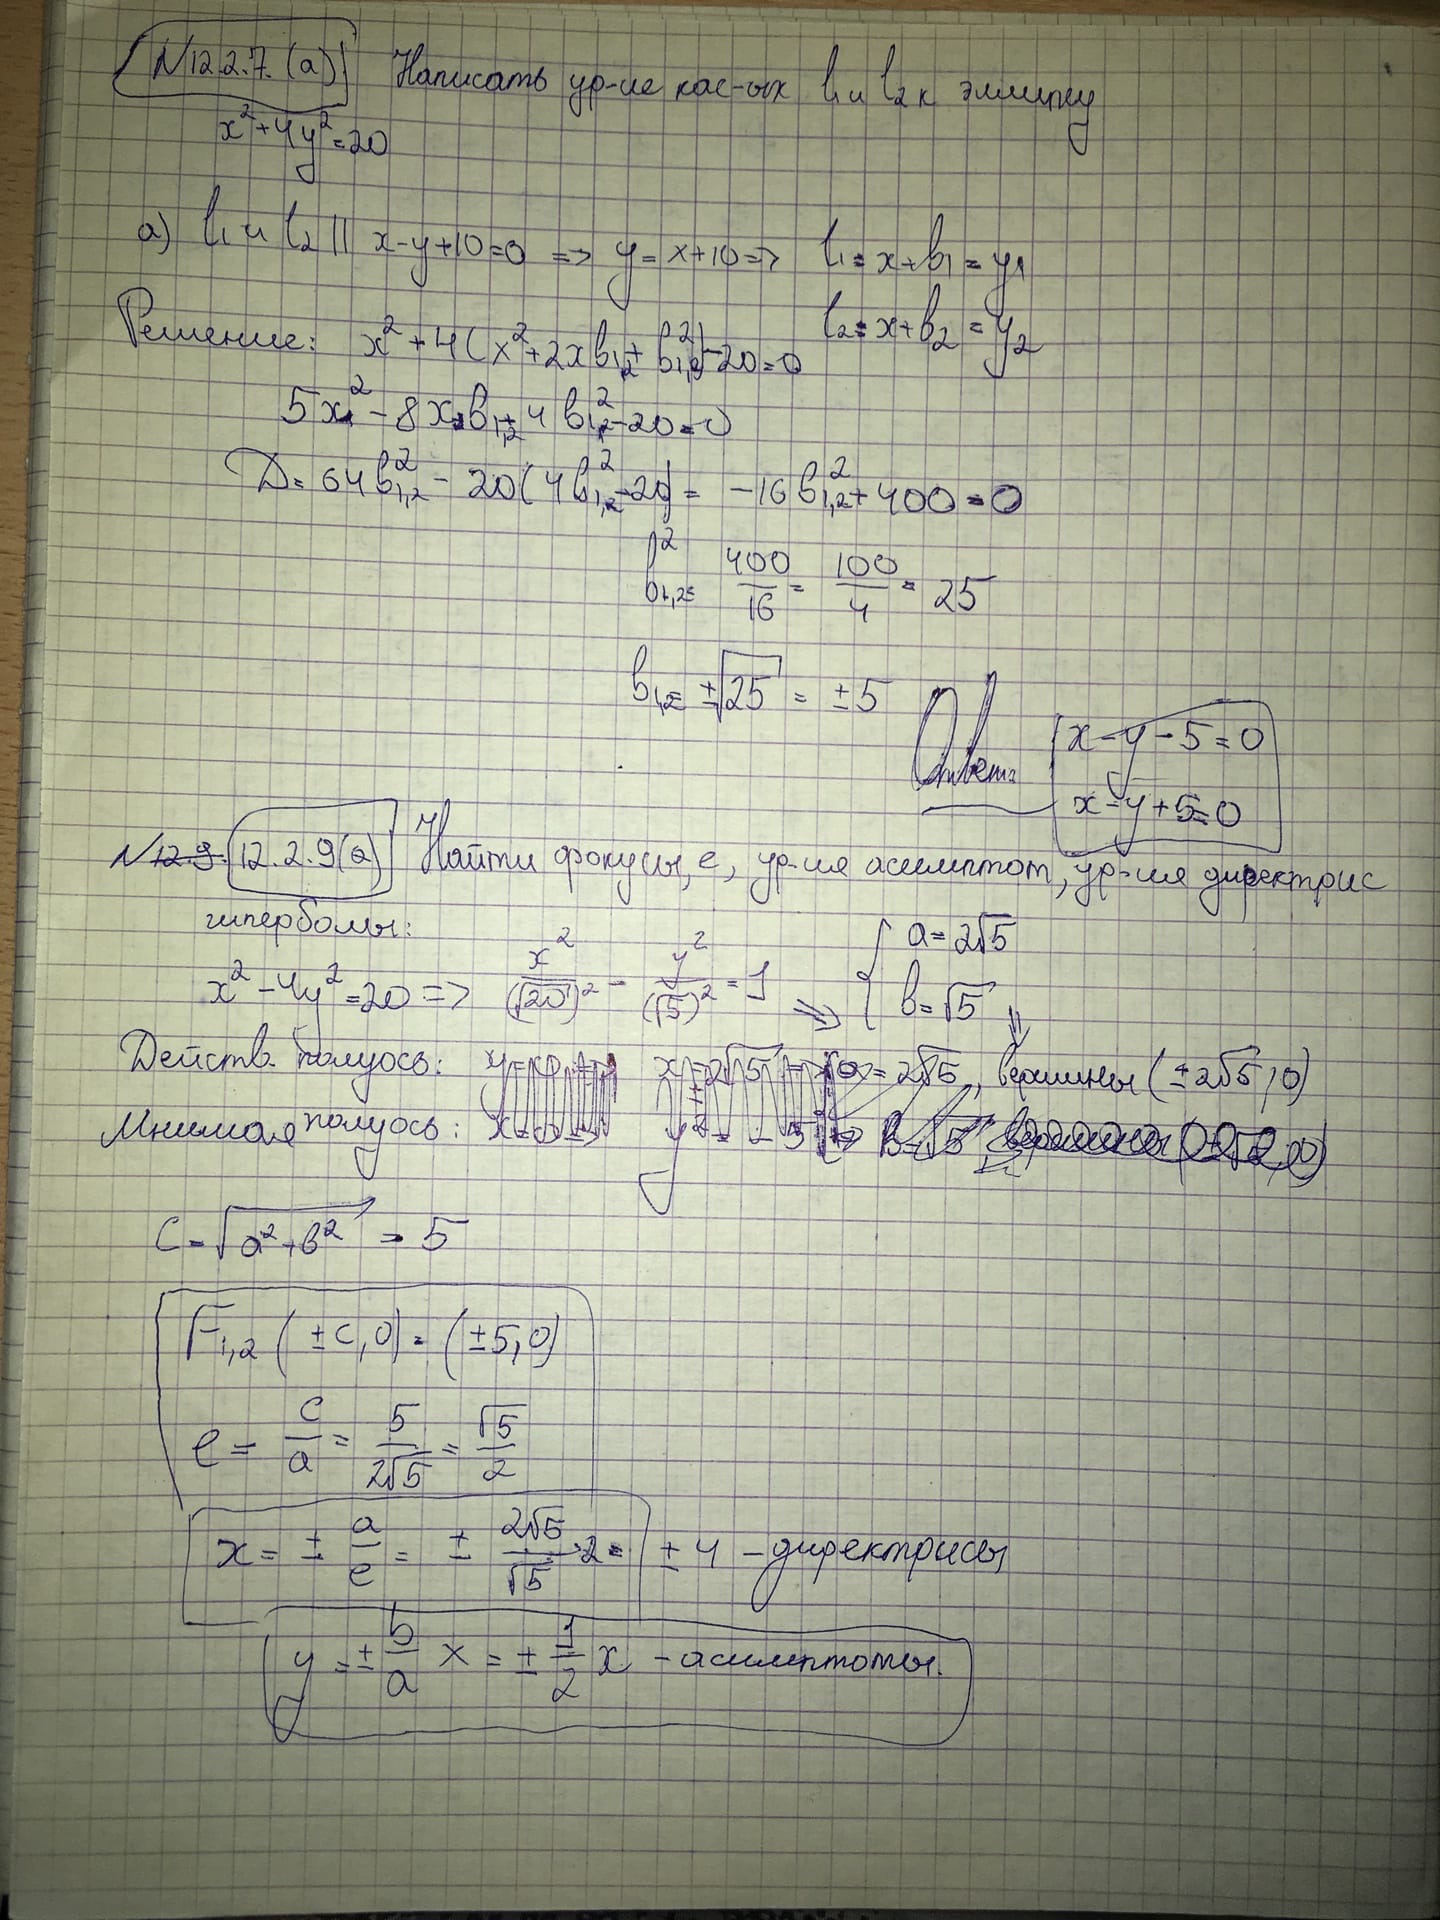 N12.2.7.(а) Написать ур-ие кас-ых l₁ и l₂ к эллипсу
x²+4y²=20
а) l₁ и l₂ || x-y+10=0 => y=x+10 => l₁ = x+b₁ = y₁
l₂ = x+b₂ = y₂
Решение: x²+4(x²+2xb₁,₂+b₁,₂²)-20=0
5x²-8xb₁,₂+4b₁,₂²-20=0
D=64b₁,₂²-20(4b₁,₂²-20)= -16b₁,₂²+400=0
b₁,₂²= 400/16 = 100/4 = 25
b₁,₂= ±√25 = ±5
Ответ: x-y-5=0
x-y+5=0
N 12.2.9(а) Найти фокусы, e, ур-ия асимптот, ур-ия директрис
гиперболы:
x²-4y²=20 => x²/(√20)² - y²/(√5)² = 1 => { a=2√5
b=√5
Действ. полуось: a=2√5, вершины (±2√5,0)
Мнимая полуось: b=√5
c=√(a²+b²) = 5
F₁,₂ (±c,0) = (±5,0)
e = c/a = 5/2√5 = √5/2
x = ± a/e = ± 2√5/√5 ·2 = ±4 - директрисы
y = ± b/a x = ± 1/2 x - асимптоты.